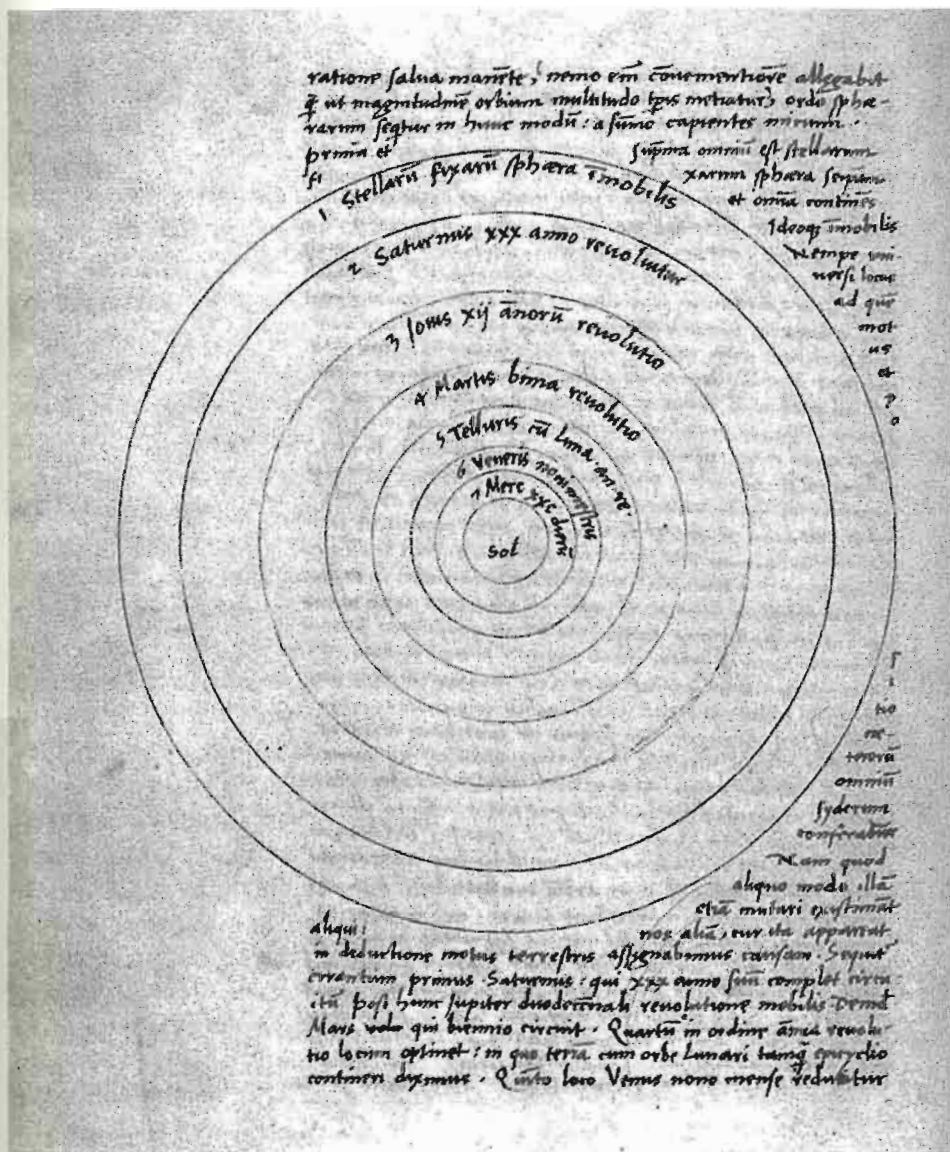 ratione salva manēte, nemo em̄ cōuenientiorē allegabit
q̄ ut magnitudinē orbium multitudo tp̄is metiatur, ordo sphæ-
rarum seq̄tur in hunc modū: a sūmo capientes initium.
prima et Sup̄ma omniū est stellarum
fi xarum sphæra seipsam
et omīa continēs
Ideoq̄ īmobilis
Nempe uni-
uersi locus
ad quē
mot
us
et
1 Stellarū fixarū sphæra īmobilis
2 Saturnus xxx anno reuoluitur
3 Jouis xij āнorū reuolutio
4 Martis bima reuolutio
5 Telluris cū Luna an. re.
6 Veneris nonimestris
7 Merc xxc dierū
Sol
tio
ce-
terorū
omniū
syderum
conferatur
Nam quod
aliquo modo illā
etiā mutari existimāt
aliqui: nos aliā, cur ita appareat
in deductione motus terrestris assignabimus causam. Sequit̄
errantium primus Saturnus: qui xxx anno suū complet circu
itū post hunc Jupiter duodecennali reuolutione mobilis Deind
Mars qui biennio circuit. Quartū in ordine ānua reuolu-
tio locum optinet: in quo terrā cum orbe Lunari tamq̄ epicyclio
contineri diximus. Quinto loco Venus nono mense reducitur